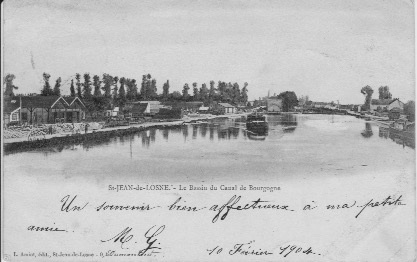 St-JEAN-de-LOSNE. - Le Bassin du Canal de Bourgogne
Un souvenir bien affectueux à ma petite
amie.
M. G.
10 Février 1904.
édit., St-Jean-de-Losne